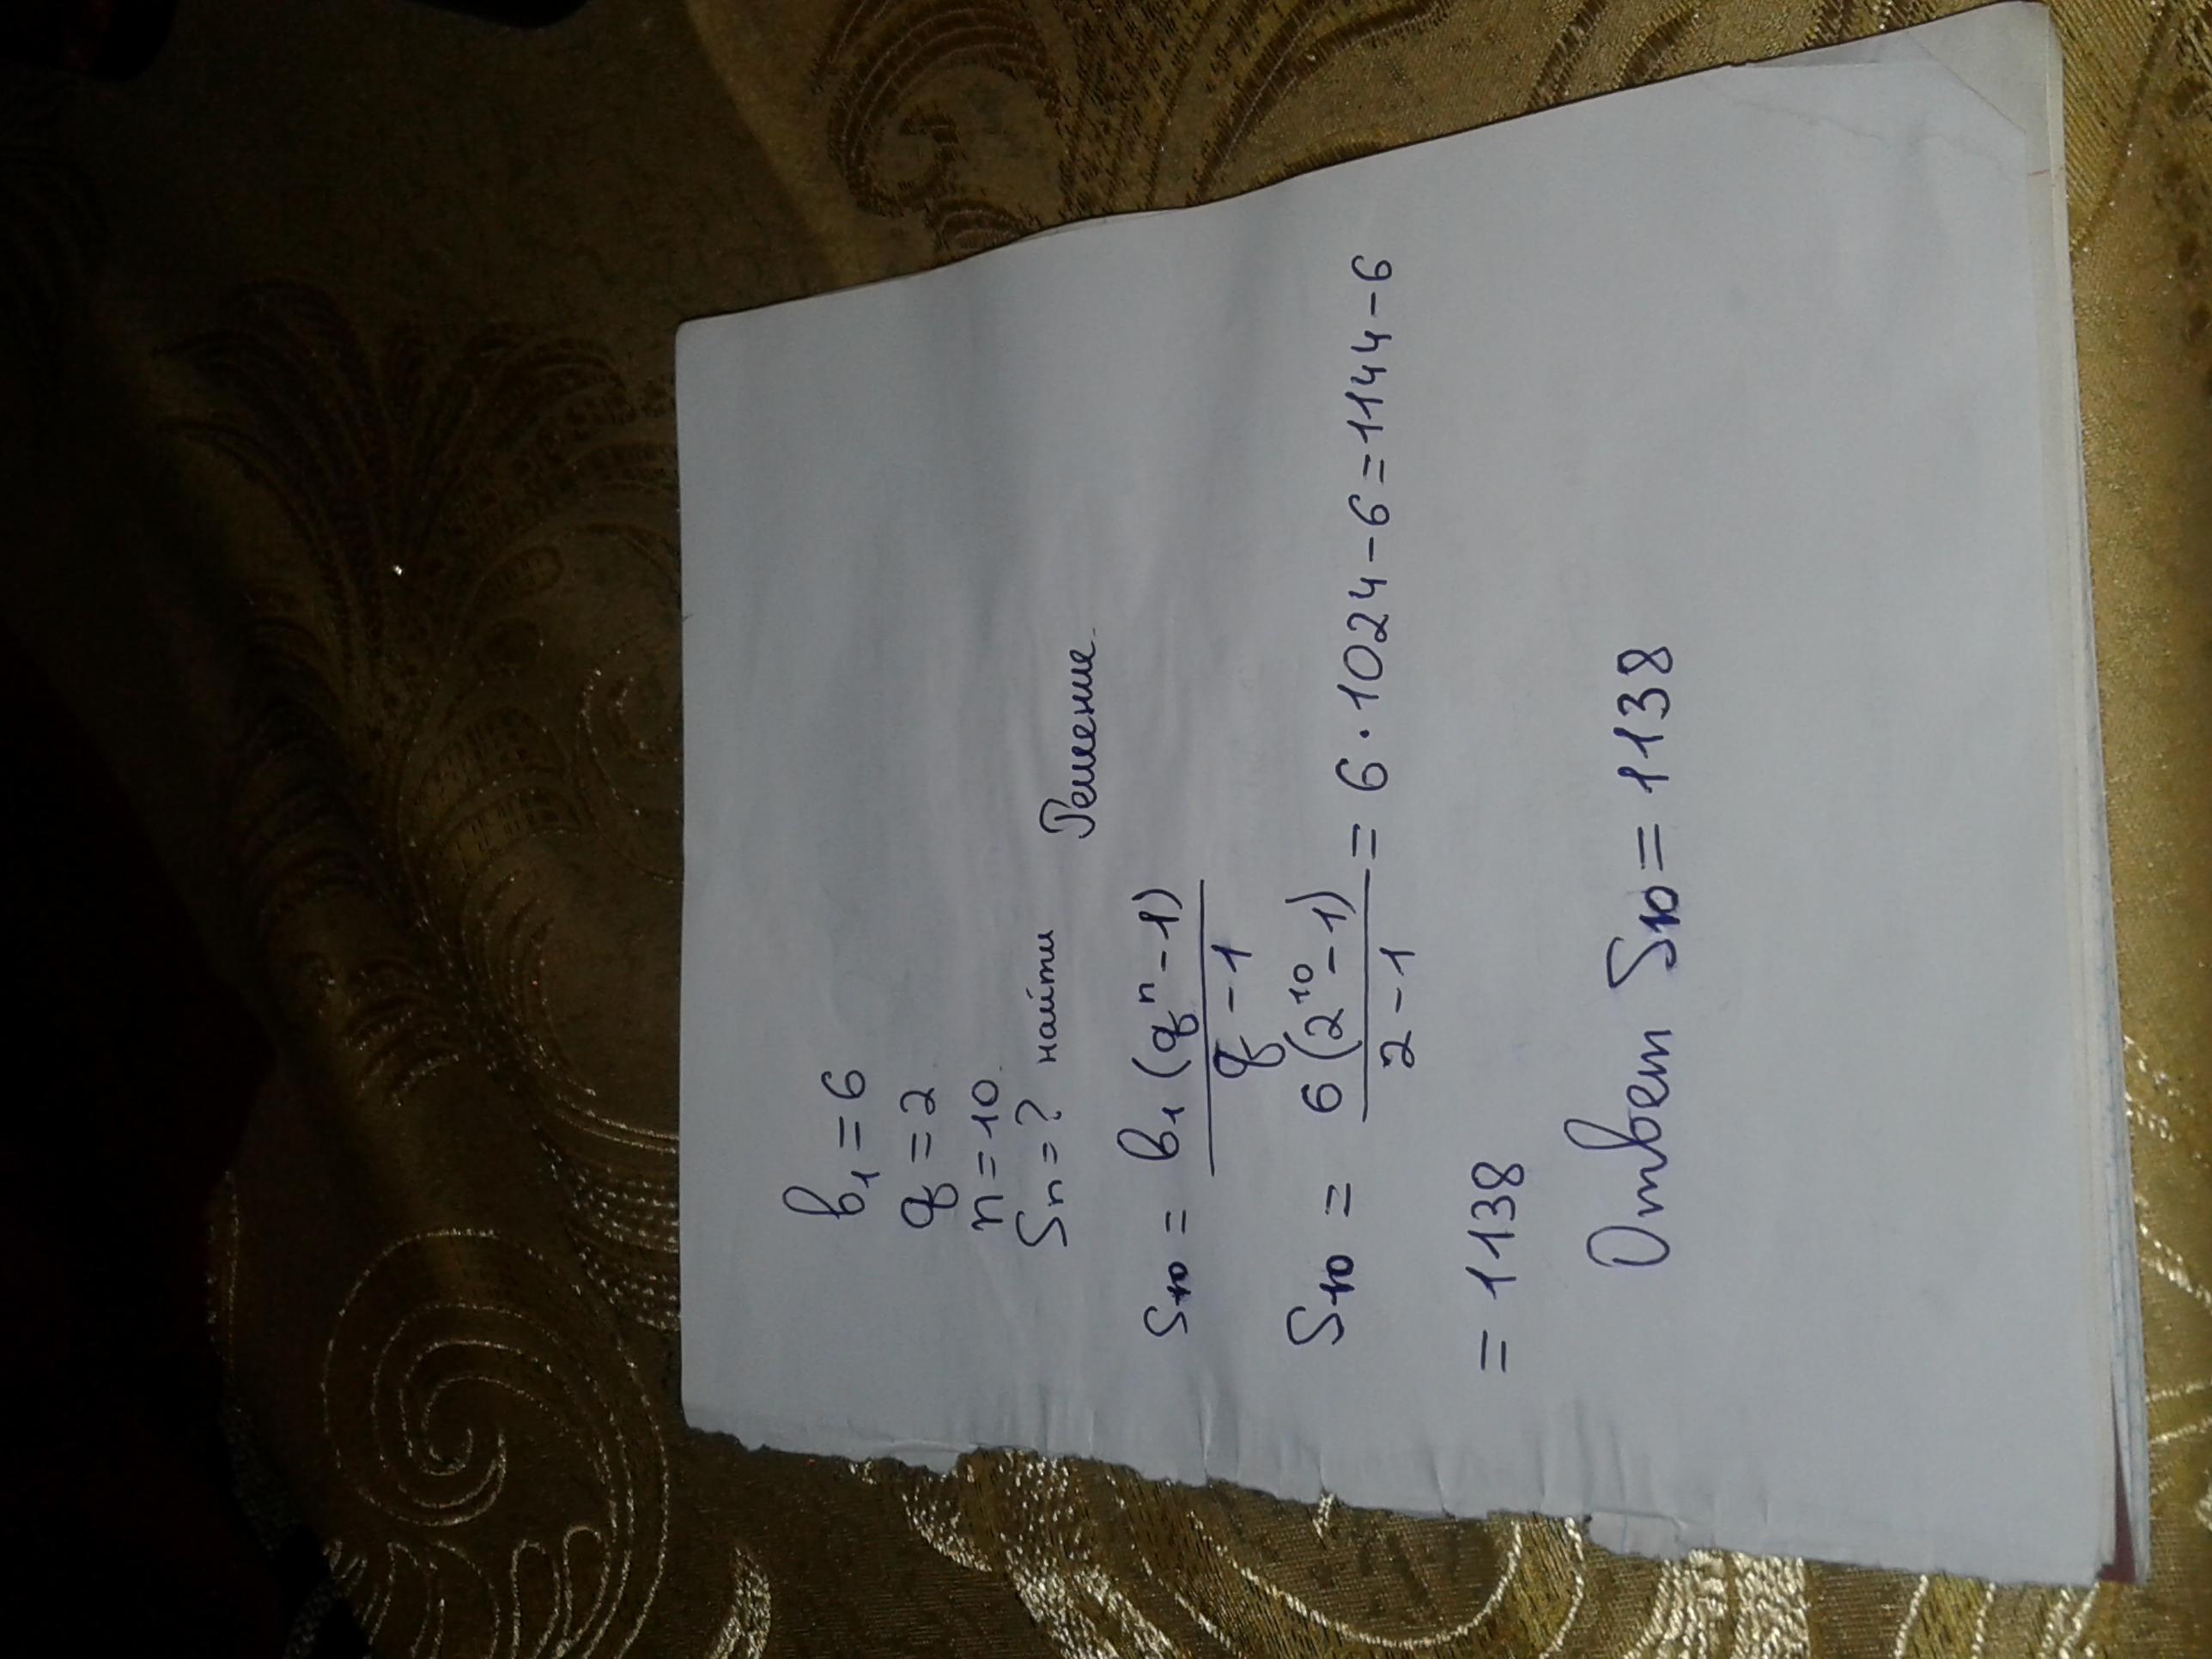 b₁ = 6
q = 2
n = 10
Sn = ? найти
Решение
S₁₀ = b₁ (qⁿ - 1) / q - 1
S₁₀ = 6 (2¹⁰ - 1) / 2 - 1 = 6 · 1024 - 6 = 1144 - 6
= 1138
Ответ S₁₀ = 1138